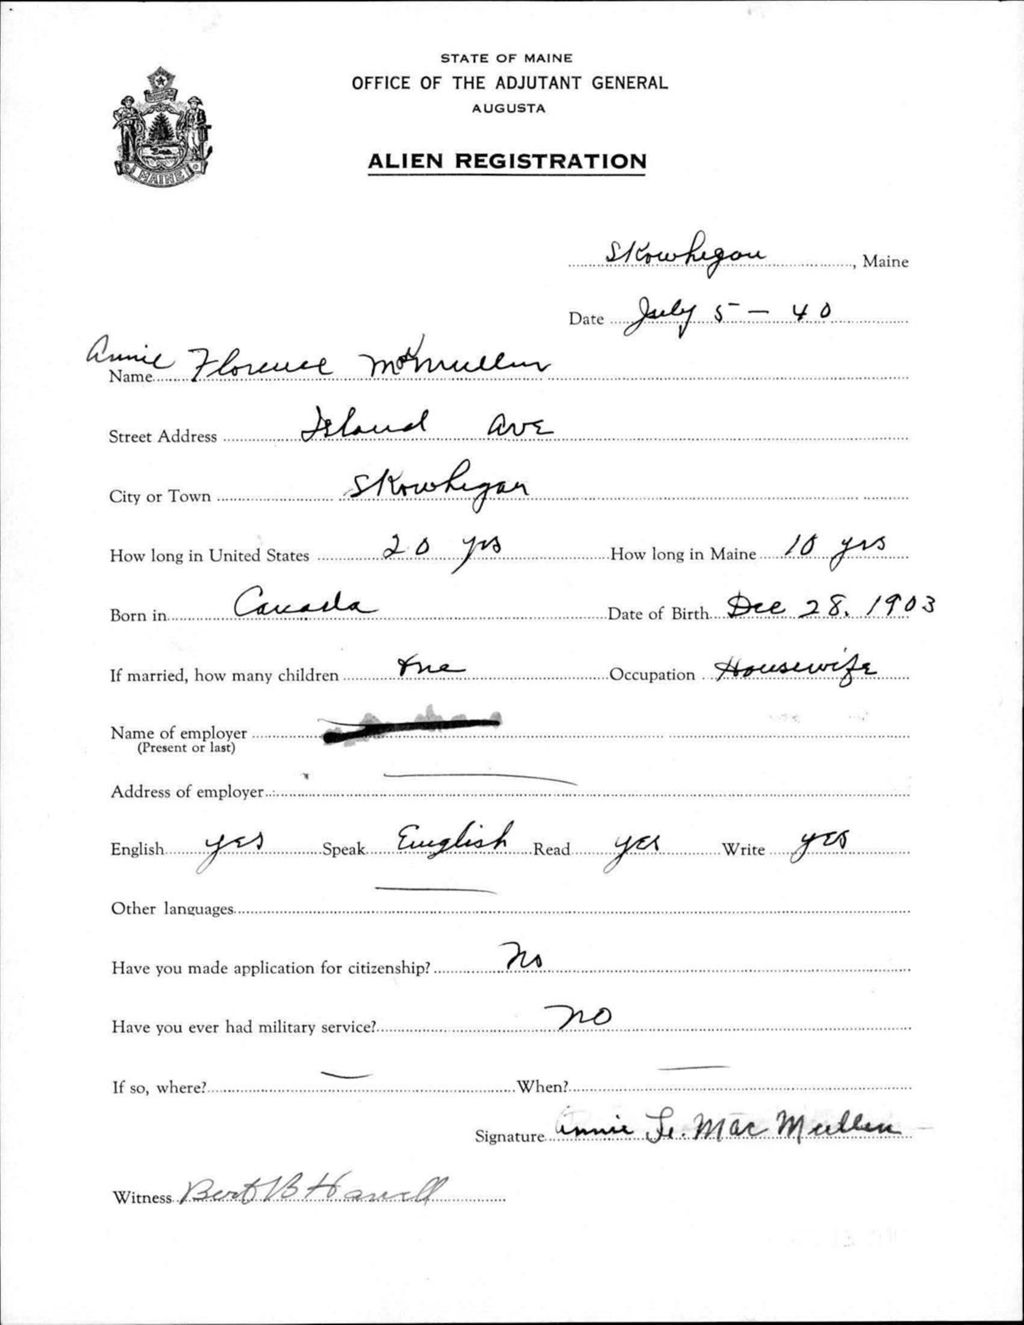 STATE OF MAINE
OFFICE OF THE ADJUTANT GENERAL
AUGUSTA
ALIEN REGISTRATION
MAINE
Skowhegan, Maine
Date July 5 - 40
Name Annie Florence McMullen
Street Address Island Ave
City or Town Skowhegan
How long in United States 20 yrs How long in Maine 10 yrs
Born in Canada Date of Birth Dec 28, 1903
If married, how many children one Occupation Housewife
Name of employer
(Present or last)
Address of employer
English yes Speak English Read yes Write yes
Other languages
Have you made application for citizenship? No
Have you ever had military service? no
If so, where? — When? —
Signature Annie F. MacMullen
Witness Bert B